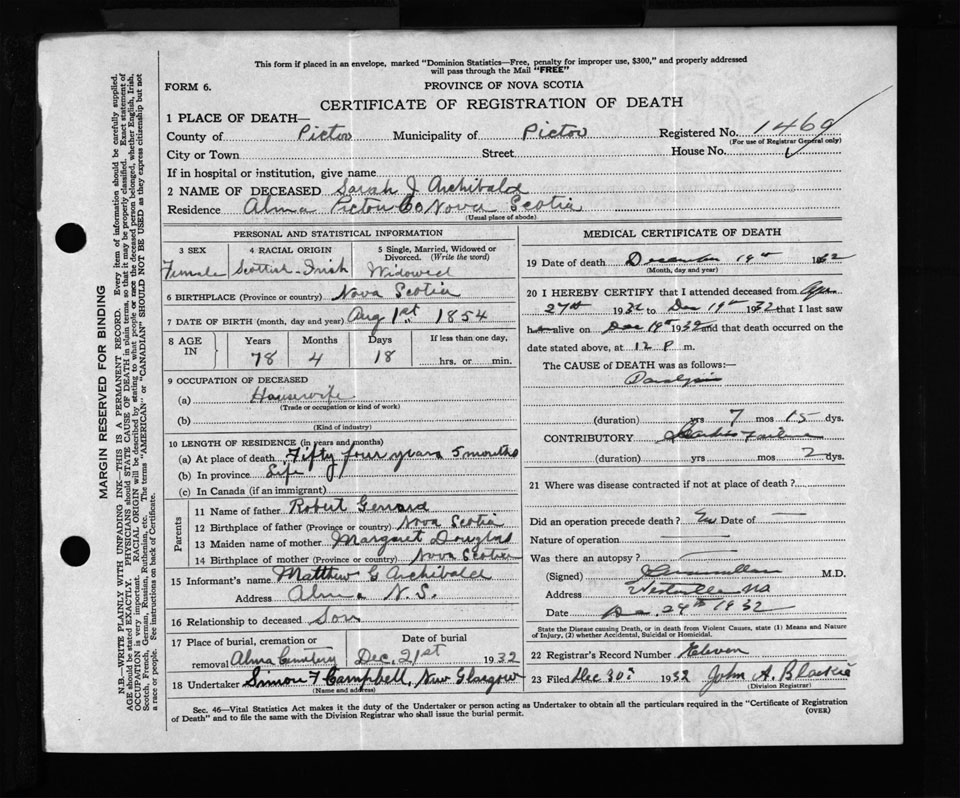 This form if placed in an envelope, marked "Dominion Statistics—Free, penalty for improper use, $300," and properly addressed
will pass through the Mail "FREE"
FORM 6.
PROVINCE OF NOVA SCOTIA
CERTIFICATE OF REGISTRATION OF DEATH
1 PLACE OF DEATH—
County of Pictou Municipality of Pictou Registered No. 1469
(For use of Registrar General only)
City or Town Street House No.
If in hospital or institution, give name
2 NAME OF DECEASED Sarah J Archibald
Residence Alma Pictou Co Nova Scotia
(Usual place of abode)
PERSONAL AND STATISTICAL INFORMATION
3 SEX 4 RACIAL ORIGIN 5 Single, Married, Widowed or
Divorced. (Write the word)
Female Scottish-Irish Widowed
6 BIRTHPLACE (Province or country) Nova Scotia
7 DATE OF BIRTH (month, day and year) Aug 1st, 1854
8 AGE IN Years Months Days If less than one day,
78 4 18 hrs. or min.
9 OCCUPATION OF DECEASED
(a) Housewife
(Trade or occupation or kind of work)
(b)
(Kind of industry)
10 LENGTH OF RESIDENCE (in years and months)
(a) At place of death Fifty four years 5 months
(b) In province Life
(c) In Canada (if an immigrant)
Parents
11 Name of father Robert
12 Birthplace of father (Province or country) Nova Scotia
13 Maiden name of mother Margaret Douglas
14 Birthplace of mother (Province or country) Nova Scotia
15 Informant's name Matthew G Archibald
Address Alma N.S.
16 Relationship to deceased Son
17 Place of burial, cremation or Date of burial
removal Alma Cemetery Dec. 21st 1932
18 Undertaker Simon F Campbell, New Glasgow
(Name and address)
MEDICAL CERTIFICATE OF DEATH
19 Date of death December 19th 1932
(Month, day and year)
20 I HEREBY CERTIFY that I attended deceased from
27th 1932 to Dec 19th 1932 that I last saw
h alive on Dec 19th 1932 and that death occurred on the
date stated above, at 12 P m.
The CAUSE of DEATH was as follows:—
Paralysis
(duration) yrs 7 mos 15 dys.
CONTRIBUTORY Failure
(duration) yrs mos 2 dys.
21 Where was disease contracted if not at place of death?
Did an operation precede death? Date of
Nature of operation
Was there an autopsy?
(Signed) M.D.
Address Westville NS
Date Dec. 29th 1932
State the Disease causing Death, or in death from Violent Causes, state (1) Means and Nature
of Injury, (2) whether Accidental, Suicidal or Homicidal.
22 Registrar's Record Number Eleven
23 Filed Dec 30th 1932 John A. Blackie
(Division Registrar)
Sec. 46—Vital Statistics Act makes it the duty of the Undertaker or person acting as Undertaker to obtain all the particulars required in the "Certificate of Registration
of Death" and to file the same with the Division Registrar who shall issue the burial permit. (OVER)
MARGIN RESERVED FOR BINDING
N.B.—WRITE PLAINLY WITH UNFADING INK—THIS IS A PERMANENT RECORD. Every item of information should be carefully supplied.
AGE should be stated EXACTLY. PHYSICIANS should STATE CAUSE OF DEATH in plain terms, so that it may be properly classified. Exact statement of
OCCUPATION is very important. RACIAL ORIGIN will be described by stating to what people or race the deceased person belonged, whether English, Irish,
Scotch, French, German, Russian, Ruthenian, etc. The terms "AMERICAN" or "CANADIAN" SHOULD NOT BE USED as they express citizenship but not
a race or people. See instructions on back of Certificate.